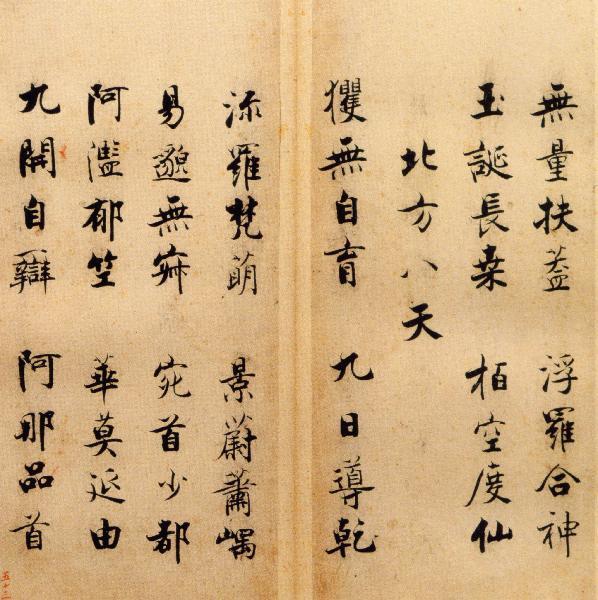 無量扶蓋 浮羅合神
玉誕長桒 柏空度仙
北方八天
玃無自育 九日導乾
流羅梵萌 景蔚蕭嵎
易邈無寂 宛首少都
阿濫郁竺 華莫延由
九開自辯 阿那品首